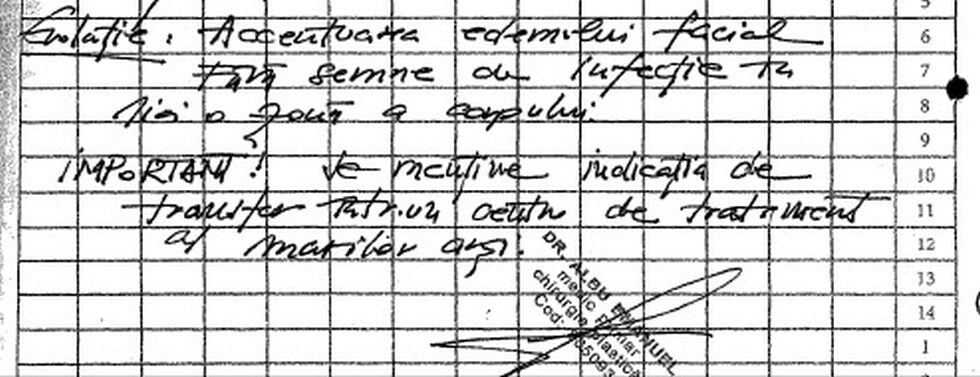 Evoluție: Accentuarea edemului facial
Fără semne de infecție în
nici o zonă a corpului.
IMPORTANT! Se menține indicația de
transfer într-un centru de tratament
al marilor arși.
DR. ALBU EMANUEL
medic primar
chirurgie plastică
Cod:
5
6
7
8
9
10
11
12
13
14
1